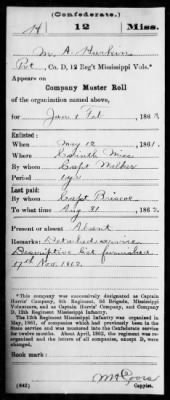 (Confederate.)
H 12 Miss.
M. A. Harkin
Pvt, Co. D, 12 Reg't Mississippi Vols.*
Appears on
Company Muster Roll
of the organization named above,
for Jan & Feb, 186
Enlisted:
When May 12, 1861.
Where Corinth Miss
By whom Capt
Period 1 yr
Last paid:
By whom Capt Briscoe
To what time Aug 31, 186
Present or absent Absent
Remarks: Detached service
Descriptive list furnished
17th Nov. 1862.
*This company was successively designated as Captain
Harris' Company, 4th Regiment, 3d Brigade, Mississippi
Volunteers, and as Captain Harris' Company, and Company
D, 12th Regiment Mississippi Infantry.
The 12th Regiment Mississippi Infantry was organized in
May, 1861, of companies which had previously been in the
State service and was mustered into the Confederate service
for twelve months. About April, 1862, the regiment was re-
organized and the letters of all companies, except D, were
changed.
Book mark:
(642)
Copyist.